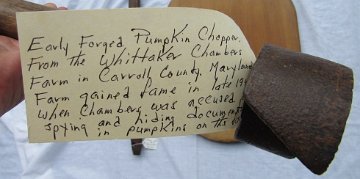 Early Forged Pumpkin Chopper
From the Whittaker Chambers
Farm in Carroll County, Maryland
Farm gained fame in late 19
when Chambers was accused
spying and hiding document
in pumpkins on the